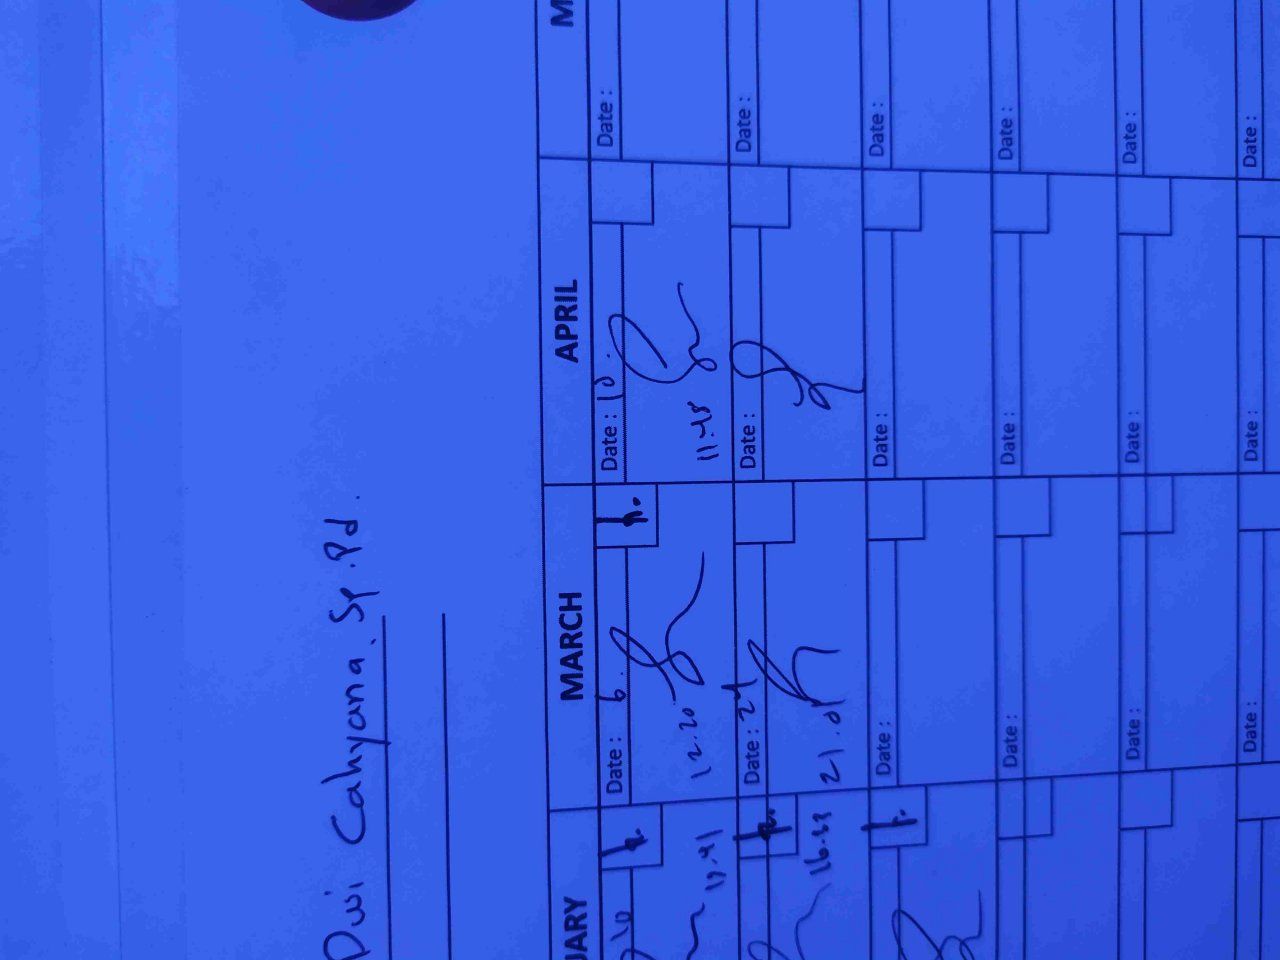 Dwi Cahyana, Sp.Pd.
UARY
MARCH
APRIL
M
10
Date : 6.
Date : 10.
Date :
19.41
12.20
11.45
Date : 24
Date :
Date :
16.33
Date :
Date :
Date :
Date :
Date :
Date :
Date :
Date :
Date :
Date :
Date :
Date :